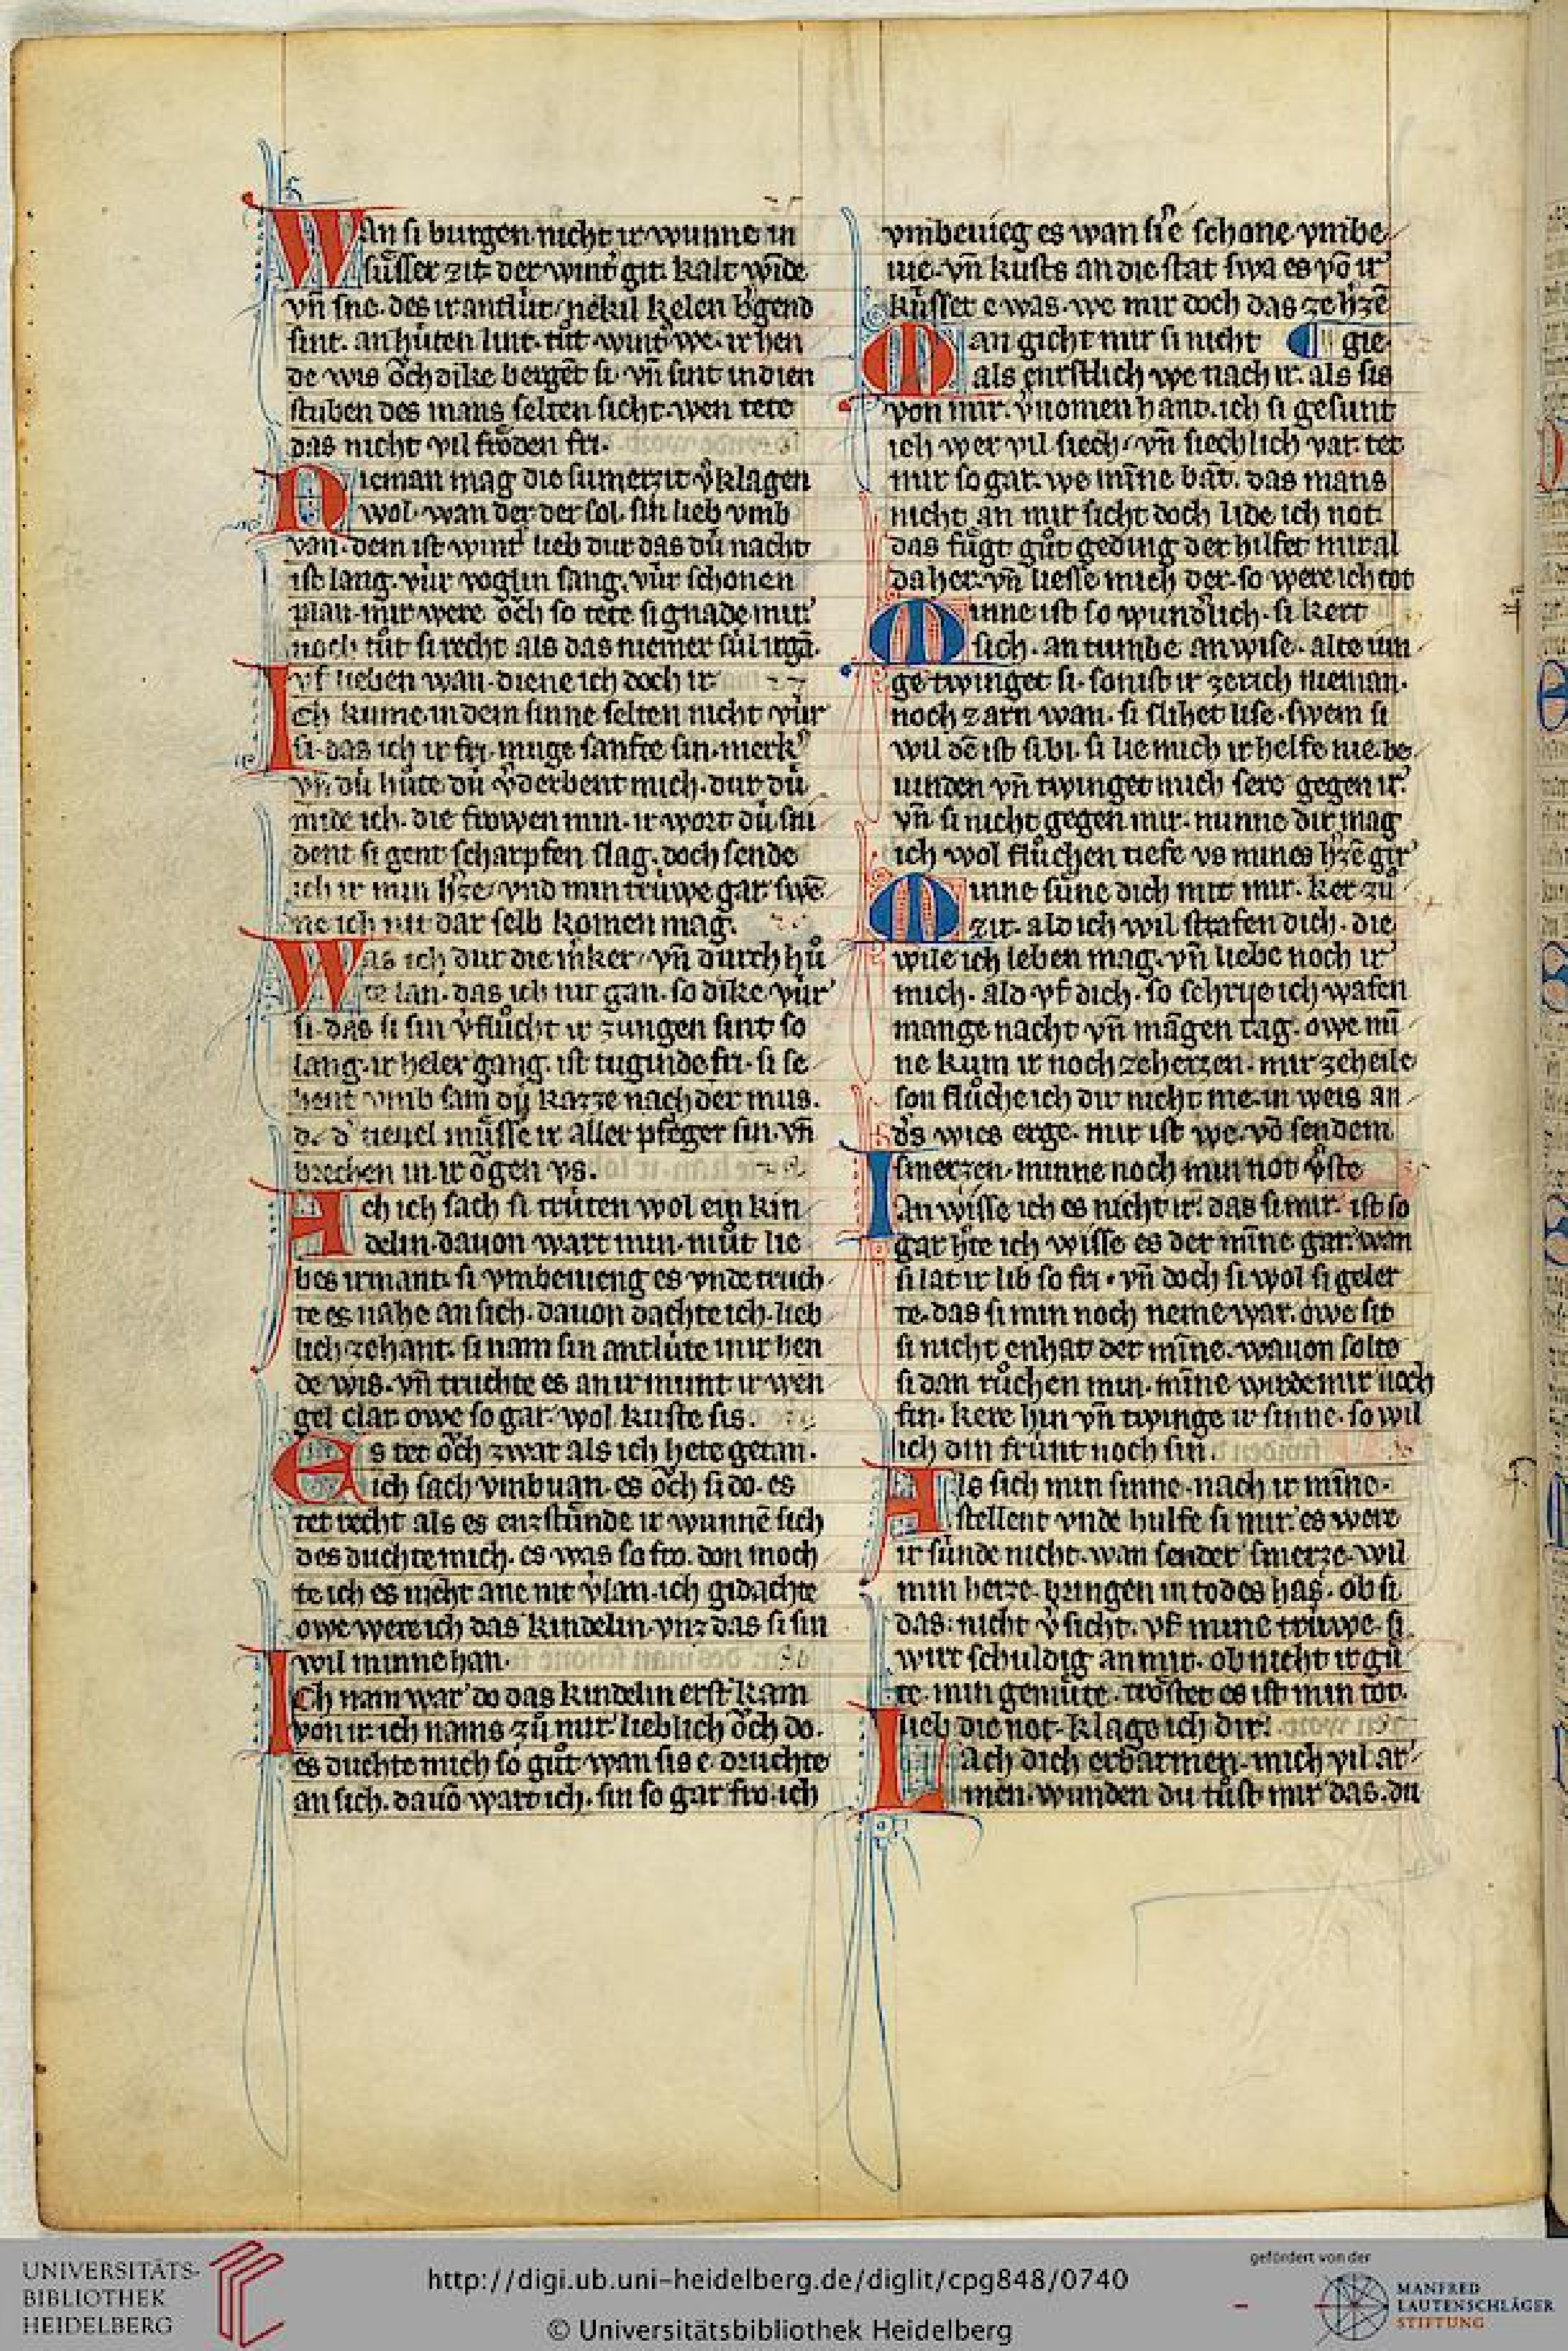 Wan si burgen nicht ir wunne in
sůsser zit. der wint᷑ git. kalt wīde
vn̄ sne. des ir antlút / nekil kelen b᷑gend
sint. an húten lint. tůt wint᷑ we. ir hen
de wis ǒch dike bergēt si. vn̄ sint in dien
stuben des mans selten sicht. wen tete
das nicht vil frǒden fri.
Nieman mag die sumerzit v᷑klagen
wol. wan der der sol. sin lieb vmb
van. dem ist wint᷑ lieb dur das dú nacht
ist lang. vúr voglin sang. vúr schonen
plan. mir were ǒch so tete si gnade mir
noch tůt si recht als das niemer súl irgā.
vf lieben wan. diene ich doch ir
Ich kume in dem sinne selten nicht vúr
si. das ich ir fri. muge sanfte sin. merk᷑
vn̄ dú hůte dú v᷑derbent mich. dur dú
mide ich. die frowen min. ir wort dú sni
dent si gent scharpfen slag. doch sende
ich ir min h᷑ze / vnd min trúwe gar swē
ne ich nit dar selb komen mag.
Was ich dur die m᷑ker / vn̄ durch hů
te lan. das ich nit gan. so dike vúr
si. das si sin v᷑flůcht ir zungen sint so
lang. ir heler gang. ist tuginde fri. si se
hent vmb sam dú kazze nach der mus.
d᷑ tieuel můsse ir aller pfleger sin. vn̄
brechen in ir ǒgen vs.
Ach ich sach si trúten wol ein kin
delin. dauon wart min. můt lie
bes irmant. si vmbevieng es vnde truch
te es nahe an sich. dauon dachte ich. lieb
lich zehant. si nam sin antlúte in ir hen
de wis. vn̄ truchte es an ir munt ir wen
gel clar. owe so gar wol kuste sis.
Es tet ǒch zwar als ich hete getan.
ich sach vmbuan. es ǒch si do. es
tet recht als es enzstůnde ir wunnē sich
des duchte mich. es was so fro. don moch
te ich es nicht ane nit v᷑lan. ich gidachte
owe were ich das kindelin. vnz das si sin
wil minne han.
Ich nam war do das kindelin erst kam
von ir. ich nams zů mir lieblich ǒch do.
es duchte mich so gůt wan sis e druchte
an sich. dauō wart ich. sin so gar fro. ich
vmbevieg es wan si'e schone vmbe
vie. vn̄ kusts an die stat swa es vō ir
kússet e was. we mir doch das ze h᷑zē
gie.
Man gicht mir si nicht
als ernstlich we nach ir. als sis
von mir. v᷑nomen hant. ich si gesunt
ich wer vil siech / vn̄ siechlich var. tet
mir so gar. we mīne bāt. das mans
nicht an mir sicht doch lide ich not.
das fůgt gůt geding der hilfet mir al
daher. vn̄ liesse mich der. so were ich tot
Minne ist so wund᷑lich. si kert
sich. an tumbe an wise. alte iun
ge twinget si. sonist ir zerich nieman.
noch zarn wan. si slihet lise. swem si
wil dē ist si bi. si lie mich ir helfe nie be
uinden vn̄ twinget mich sere gegen ir.
vn̄ si nicht gegen mir. minne dir mag
ich wol flůchen tiefe vs mines h᷑zē gir
Minne sůne dich mit mir. ker zů
zir. ald ich wil strafen dich. die
wile ich leben mag. vn̄ liebe noch ir
mich. ald vf dich. so schrije ich wafen
mange nacht vn̄ māgen tag. owe mī
ne kum ir noch zeherzen. mir zeheile
son flůche ich dir nicht me. in weis an
d᷑s wies erge. mir ist we. vō sendem
smerzen. minne noch min not v᷑ste
Ian wisse ich es nicht ir. das si mir. ist so
gar h᷑te ich wisse es der mīne gar. wan
si lat ir lib so fri. vn̄ doch si wol si geler
te. das si min noch neme war. owe sit
si nicht enhat der mīne. wauon solte
si dan růchen min. mīne wirde mir noch
fin. kere hin vn̄ twinge ir sinne. so wil
ich din frúnt noch sin.
Als sich min sinne. nach ir mīne.
stellent vnde hulfe si mir. es were
ir súnde nicht. wan sender smerze. wil
min herze. bringen in todes has. ob si
das. nicht v᷑sicht. vf mine trúwe. si
wirt schuldig an mir. ob nicht ir gú
te. min gemúte. trǒstet es ist min tot.
lieb die not. klage ich dir.
Lach dich erbarmen. mich vil ar
men. wunden du tůst mir das. du
UNIVERSITÄTS-
BIBLIOTHEK
HEIDELBERG
http://digi.ub.uni-heidelberg.de/diglit/cpg848/0740
© Universitätsbibliothek Heidelberg
gefördert von der
MANFRED
LAUTENSCHLÄGER
STIFTUNG